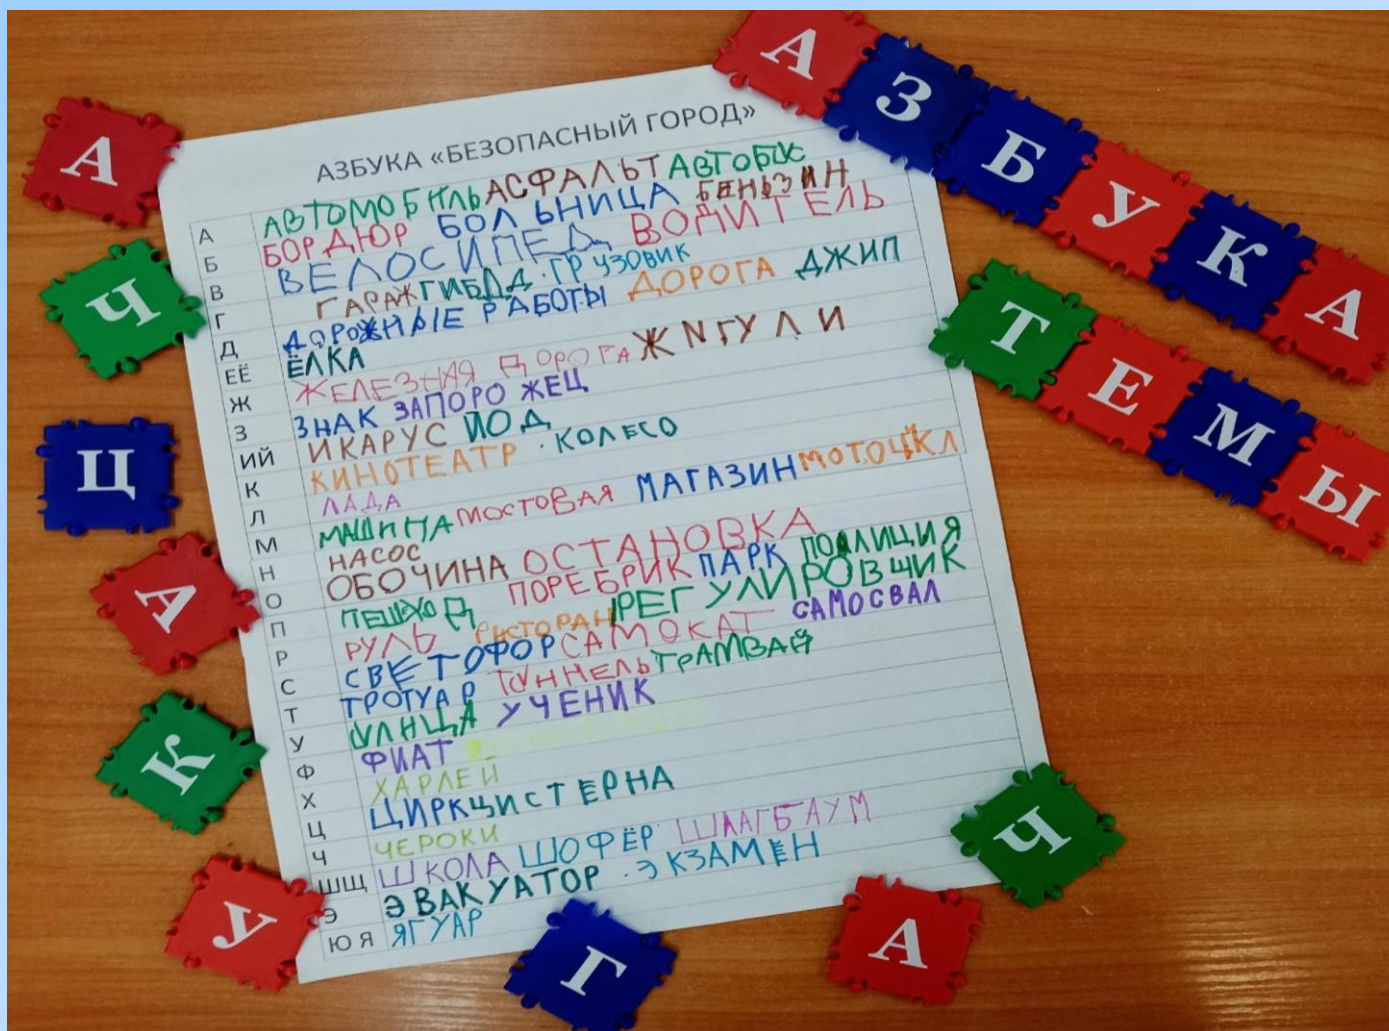 АЗБУКА
ТЕМЫ
АЗБУКА «БЕЗОПАСНЫЙ ГОРОД»
А АВТОМОБИЛЬ АСФАЛЬТ АВТОБУС
Б БОРДЮР БОЛЬНИЦА БЕНЬЗИН
В ВЕЛОСИПЕД ВОДИТЕЛЬ
Г ГАРАЖ ГИБДД ГРУЗОВИК
Д ДОРОЖНЫЕ РАБОТЫ ДОРОГА ДЖИП
ЕЁ ЁЛКА
Ж ЖЕЛЕЗНАЯ ДОРОГА ЖИГУЛИ
З ЗНАК ЗАПОРОЖЕЦ
ИЙ ИКАРУС ЙОД
К КИНОТЕАТР КОЛЕСО
Л ЛАДА
М МАШИНА МОСТОВАЯ МАГАЗИН МОТОЦИКЛ
Н НАСОС
О ОБОЧИНА ОСТАНОВКА
П ПЕШЕХОД ПОРЕБРИК ПАРК ПОЛИЦИЯ
Р РУЛЬ РИСТОРАН РЕГУЛИРОВЩИК
С СВЕТОФОР САМОКАТ САМОСВАЛ
Т ТРОТУАР ТУННЕЛЬ ТРАМВАЙ
У УЛИЦА УЧЕНИК
Ф ФИАТ
Х ХАРЛЕЙ
Ц ЦИРК ЦИСТЕРНА
Ч ЧЕРОКИ
ШЩ ШКОЛА ШОФЁР ШЛАГБАУМ
Э ЭВАКУАТОР ЭКЗАМЕН
Ю Я ЯГУАР
А
Ч
Ц
А
К
У
Г
А
Ч